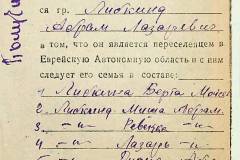 ся гр. Либкинд
Абрам Лазаревич
в том, что он является переселенцем в
Еврейскую Автономную область и с ним
следует его семья в составе:
1 Либкинд Берта
2 Либкинд Миша Абрам.
3 —"— Ревекка
4 —"— Лазарь —"—
5 —"—